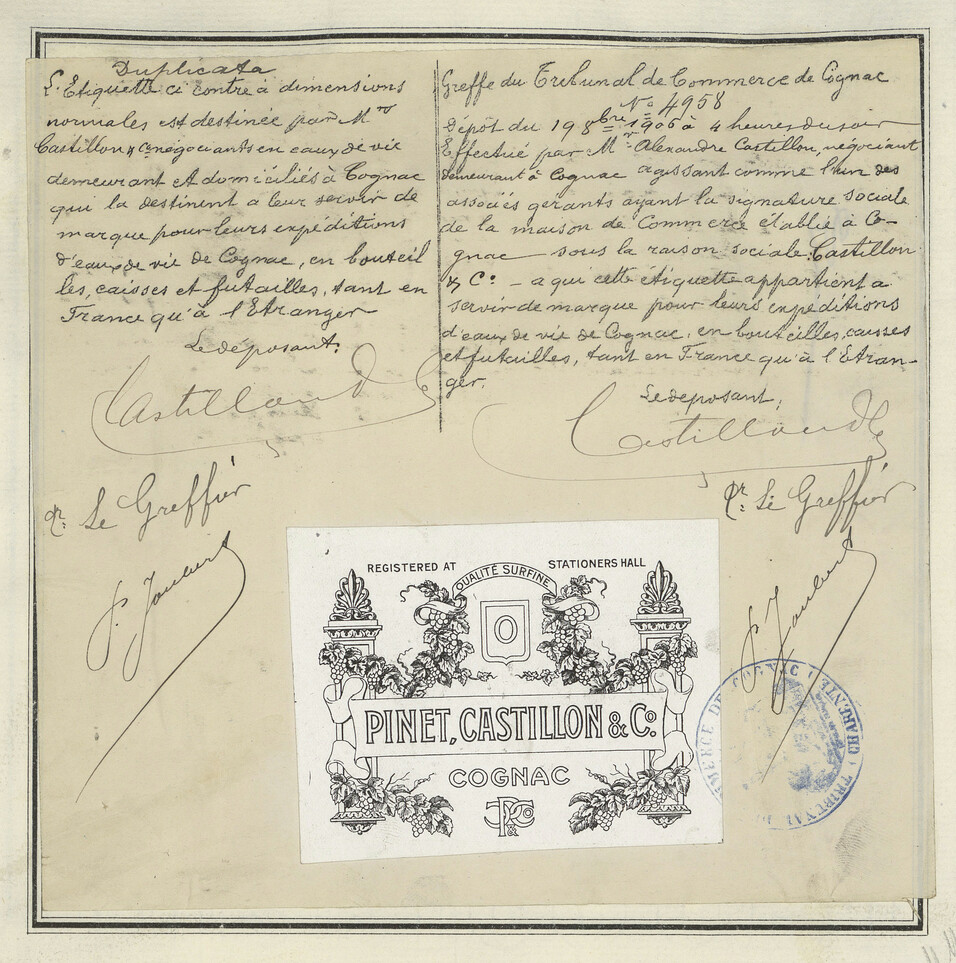 Duplicata
L'Etiquette ci contre à dimensions
normales est destinée par Mrs
Castillon & Ce négociants en eaux de vie
demeurant et domiciliés à Cognac
qui la destinent a leur servir de
marque pour leurs expéditions
d'eaux de vie de Cognac, en bouteil
les, caisses et futailles, tant en
France qu'à l'Etranger
Le déposant,
Castillon & Co
pr. Le Greffier
Greffe du Tribunal de Commerce de Cognac
No 4958
Dépôt du 19 8bre 1906 à 4 heures du soir
Effectué par Mr Alexandre Castillon, négociant
demeurant à Cognac agissant comme l'un des
associés gérants ayant la signature sociale
de la maison de Commerce établie à Co-
gnac sous la raison sociale Castillon
& Co - a qui cette étiquette appartient a
servir de marque pour leurs expéditions
d'eaux de vie de Cognac, en bouteilles, caisses
et futailles, tant en France qu'à l'Etran-
ger.
Le déposant,
Castillon & Co
Pr. Le Greffier
REGISTERED AT STATIONERS HALL
QUALITÉ SURFINE
O
PINET, CASTILLON & Co.
COGNAC
MERCE DE COGNAC (CHARENTE) TRIBUNAL